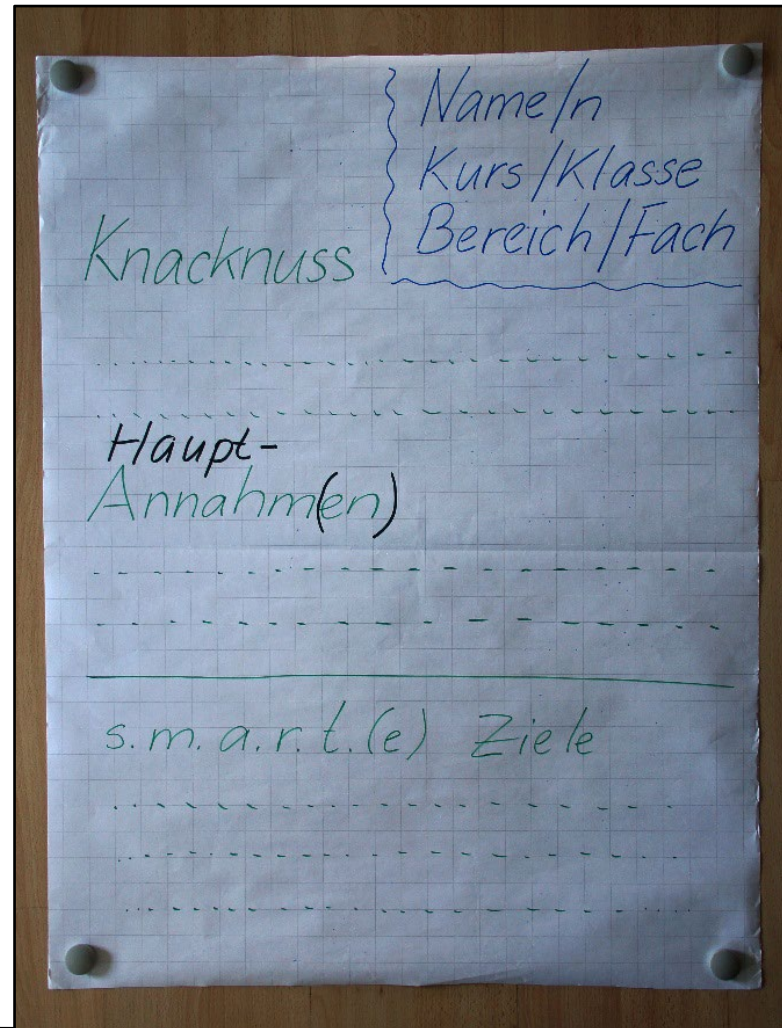 Name/n
Kurs/Klasse
Bereich/Fach
Knacknuss
Haupt-
Annahm(en)
s.m.a.r.t.(e) Ziele